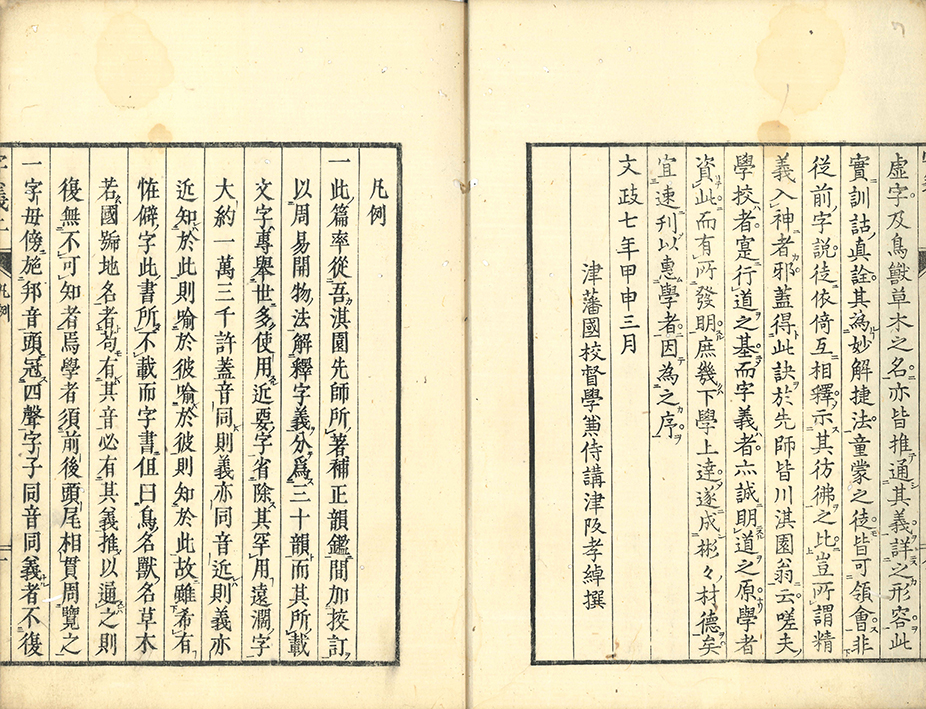 虛字及鳥獸草木之名亦皆推通其義詳之形容此
實訓詁真詮其為妙解捷法童蒙之徒皆可領會非
從前字說徒依倚互相釋示其彷彿之比豈所謂精
義入神者邪蓋得此訣於先師皆川淇園翁云嗟夫
學校者寔行道之基而字義者亦誠明道之原學者
資此而有所發明庶幾下學上達遂成彬々材德矣
宜速刊以惠學者因為之序
文政七年甲申三月
津藩國校督學兼侍講津阪孝綽撰
凡例
一此篇率從吾淇園先師所著補正韻鑑間加挍訂
以周易開物法解釋字義分爲三十韻而其所載
文字專舉世多使用近要字省除其罕用遠濶字
大約一萬三千許蓋音同則義亦同音近則義亦
近知於此則喻於彼喻於彼則知於此故雖希有
恠僻字此書所不載而字書但曰鳥名獸名草木
若國號地名者苟有其音必有其義推以通之則
復無不可知者焉學者須前後頭尾相貫周覽之
一字毋傍施邦音頭冠四聲字子同音同義者不復
凡例